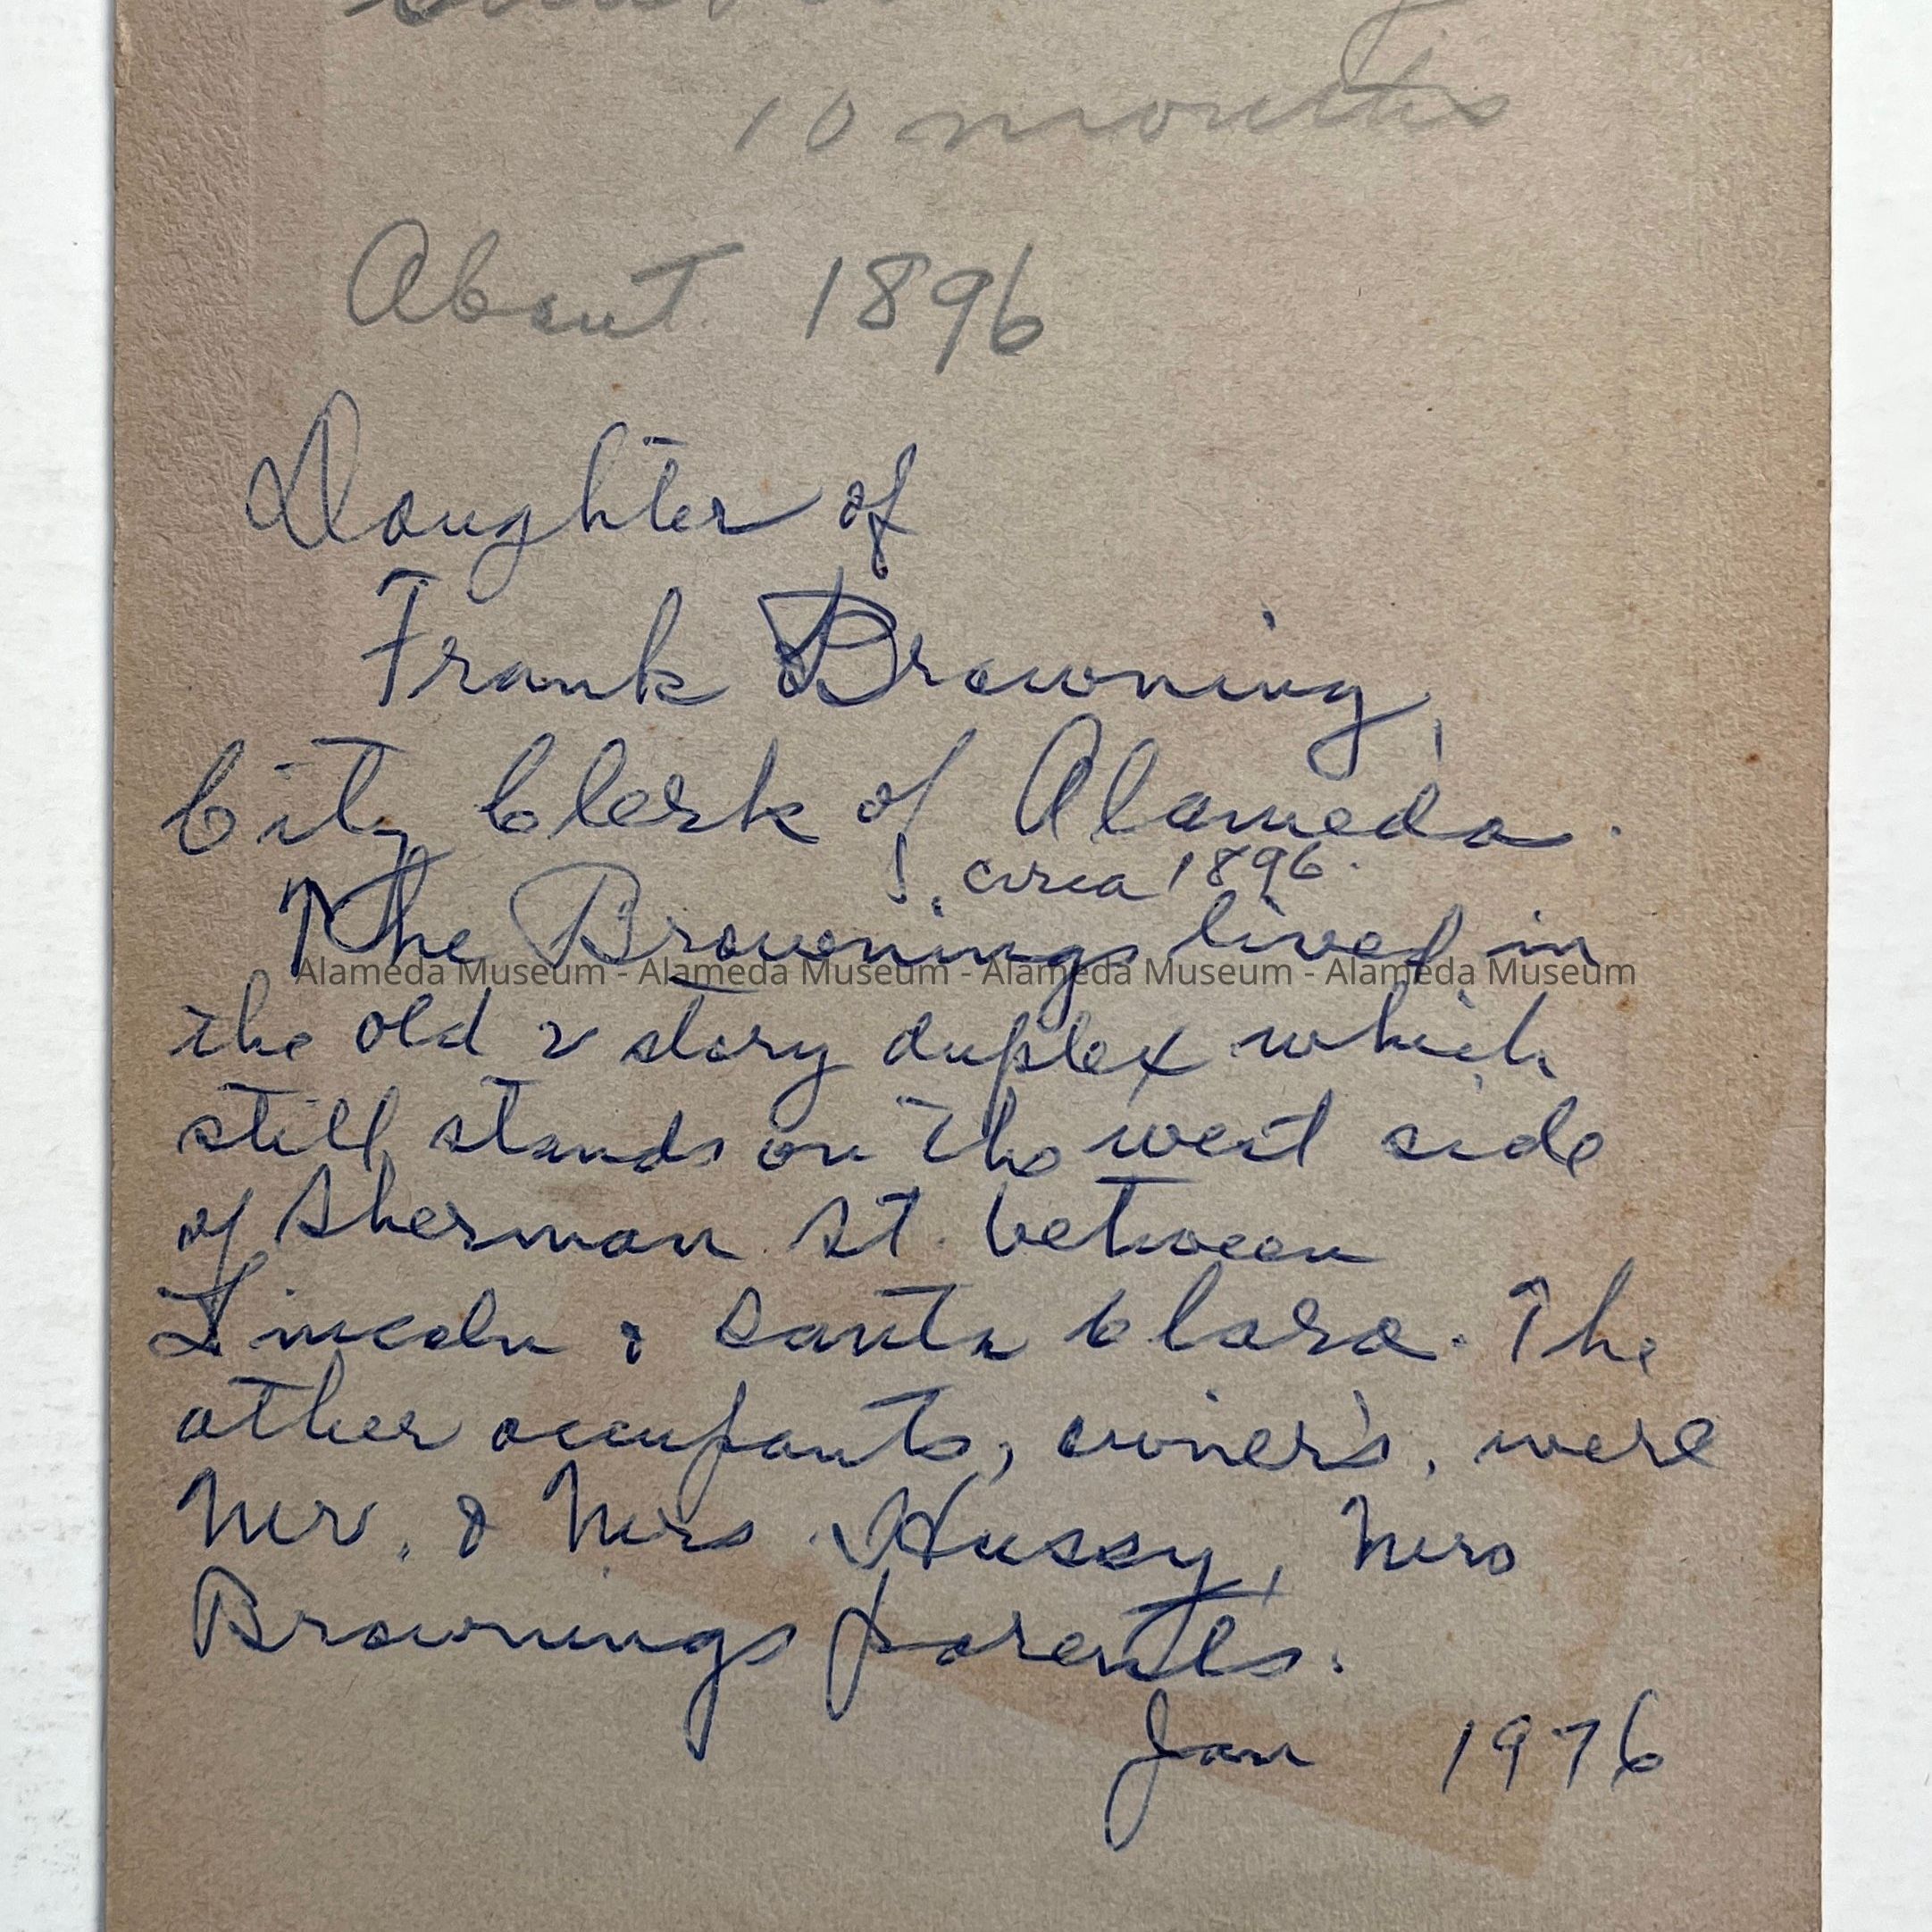 10 months
About 1896
Daughter of
Frank Browning,
City Clerk of Alameda.
circa 1896.
The Brownings lived in
Alameda Museum - Alameda Museum - Alameda Museum - Alameda Museum
the old 2 story duplex which
still stands on the west side
of Sherman St. between
Lincoln & Santa Clara. The
other occupants, owner's, were
Mr. & Mrs. Hussy, Mrs
Brownings parents.
Jan 1976